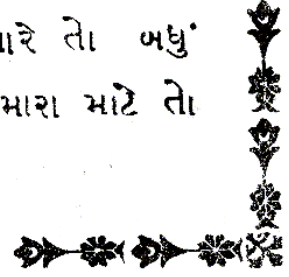 તો બધું
મારા માટે તો